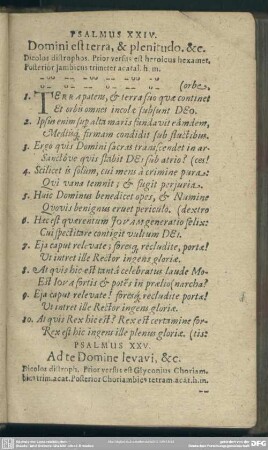 PSALMUS XXIV.
Domini est terra, & plenitudo. &c.
Dicolos distrophos. Prior versus est heroicus hexamet.
Posterior Iambicus trimeter acatal. h. m.
(orbe,
1. TErra patem, & terra suo quæ continet
Et orbis omnes incolæ subsunt DEo.
2. Ipse enim super alta maris fundavit eamdem,
Mediisq́ firmam condidit sub fluctibus.
3. Ergo quis Domini sacras transcendet in ar-
Sanctove quis stabit DEI sub atrio? (ces?
4. Scilicet is solum, cui mens à crimine pura:
Qui vana temnit; & fugit perjuria.
5. Huic Dominus benedicet opes, & Numine
Quovis benignus eruet periculo. (dextro
6. Hec est quærentum generatio felix:
Cui spectare contigit vultum DEI.
7. Eja caput relevate; foresq́ recludite, porta!
Ut intret ille Rector ingens gloriæ.
8. At quis hic est tantâ celebratus laude Mo-
Est Iova fortis & potens in prælio. (narcha?
9. Eja caput relevate! foresq́ recludite porta!
Ut intret ille Rector ingens gloriæ.
10. At quis Rex hic est? Rex est certamine for-
Rex est hic ingens ille plenus gloriæ. (tis:
PSALMUS XXV.
Ad te Domine levavi, &c.
Dicolos distropis. Prior versus est Glyconius Choriam-
bicus trim. acat. Posterior Choriambicus tetram. acat. h. m.
DFG